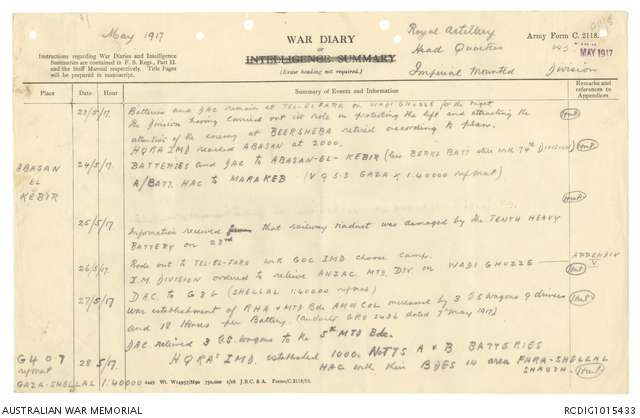 May 1917
WAR DIARY
or
INTELLIGENCE SUMMARY
(Erase heading not required.)
Royal Artillery
Head Quarters
Imperial Mounted Division
Army Form C. 2118.
MAY 1917
Instructions regarding War Diaries and Intelligence
Summaries are contained in F. S. Regs., Part II.
and the Staff Manual respectively. Title Pages
will be prepared in manuscript.
Place
Date
Hour
Summary of Events and Information
Remarks and
references to
Appendices
23/5/17. Batteries and DAC remain at TEL-EL-FARA on WADI GHUZZE for the night
the Division having carried out its role in protecting the left and attracting the
attention of the enemy at BEERSHEBA retired according to plan.
HQRA IMD reached ABASAN at 2000.
ABASAN
EL
KEBIR
24/5/17. BATTERIES and DAC to ABASAN-EL-KEBIR (less BERKS BATT still with 74th DIVISION)
A/BATT. HAC to MARAKEB (V.9.5.8 GAZA 1:40000 refmap)
25/5/17. Information received that railway viaduct was damaged by the TENTH HEAVY
BATTERY on 23rd
26/5/17. Rode out to TEL-EL-FARA with GOC IMD choose camp.
I.M. DIVISION ordered to relieve ANZAC MTD. DIV. on WADI GHUZZE
APPENDIX
V.
27/5/17. DAC. to G86 (SHELLAL 1:40000 refmap)
War establishment of RHA & MTD Bde AMM COL increased by 3 GS Wagons 9 drivers
and 18 Horses per Battery. (authority GRO 2436 dated 7 May 1917)
DAC received 3 G.S. Wagons to the 5th MTD Bde.
G407
refmap
GAZA-SHELLAL 1:40000
28/5/17. HQRA IMD. established 1000. NOTTS A & B BATTERIES
HAC with their BDES in area FARA-SHELLAL
W4957/M90 750,000 1/16 J.B.C. & A. Forms/C.2118/12.
AUSTRALIAN WAR MEMORIAL
RCDIG1015433